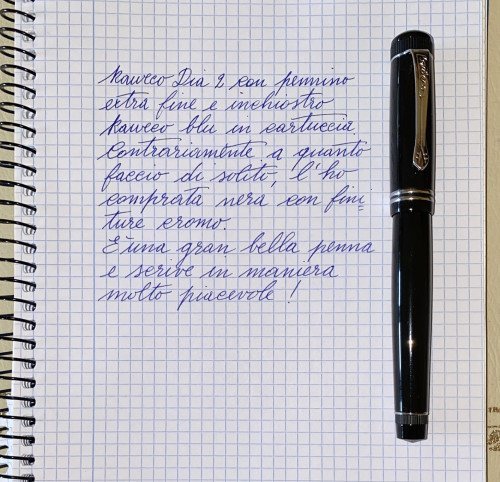 Kaweco Dia 2 con pennino
extra fine e inchiostro
Kaweco blu in cartuccia.
Contrariamente a quanto
faccio di solito, l'ho
comprata nera con fini=
ture cromo.
È una gran bella penna
e scrive in maniera
molto piacevole!